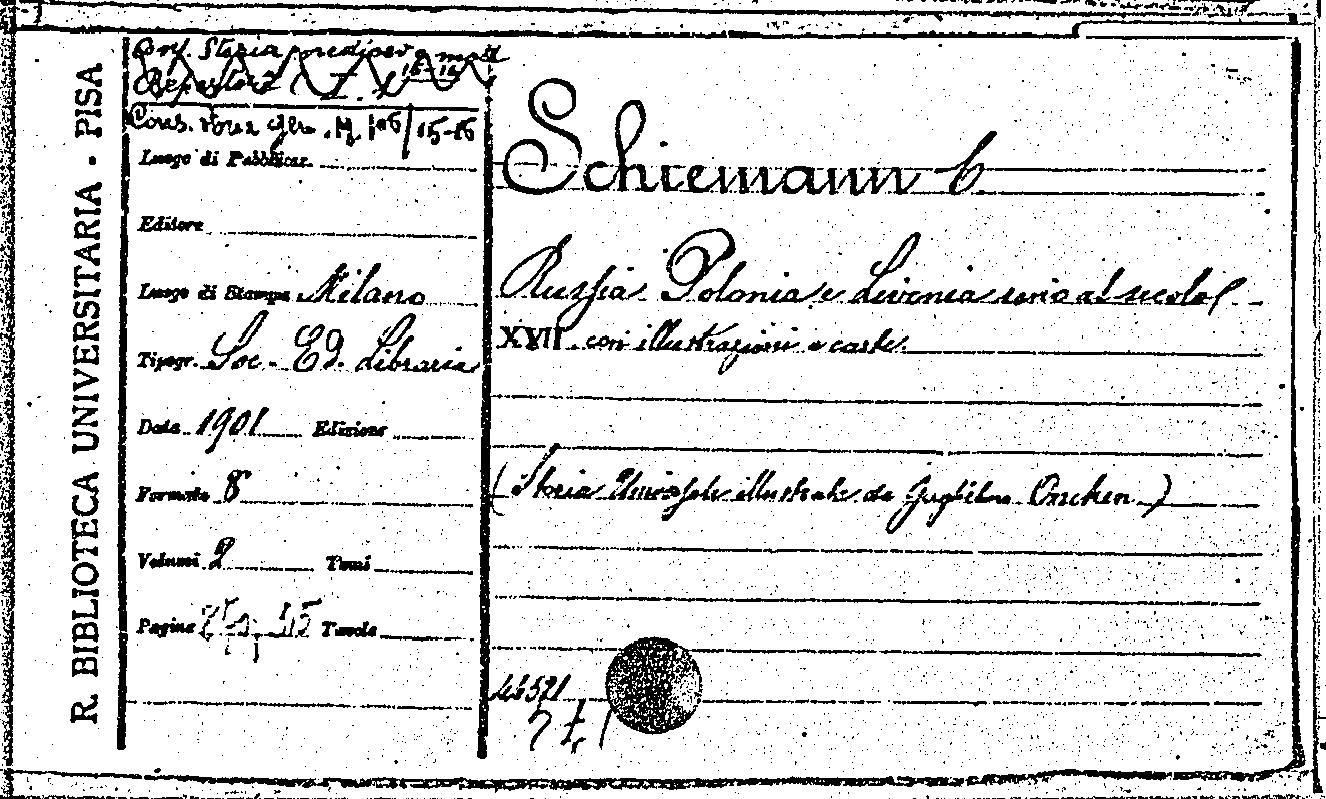 R. BIBLIOTECA UNIVERSITARIA - PISA
Conf. Storia medioev. e mod.
15-16
Cons. M. 106/15-16
Luogo di Pubblicaz.
Editore
Luogo di Stampa Milano
Tipogr. Soc. Ed. Libraria
Data 1901 Edizione
Formato 8
Volumi 2 Tomi
Pagine Tavole
Schiemann
Russia Polonia e Livonia sino al secolo
XVII con illustrazioni e carte.
(Storia Universale illustrata da Guglielmo Oncken)
46521
2 t